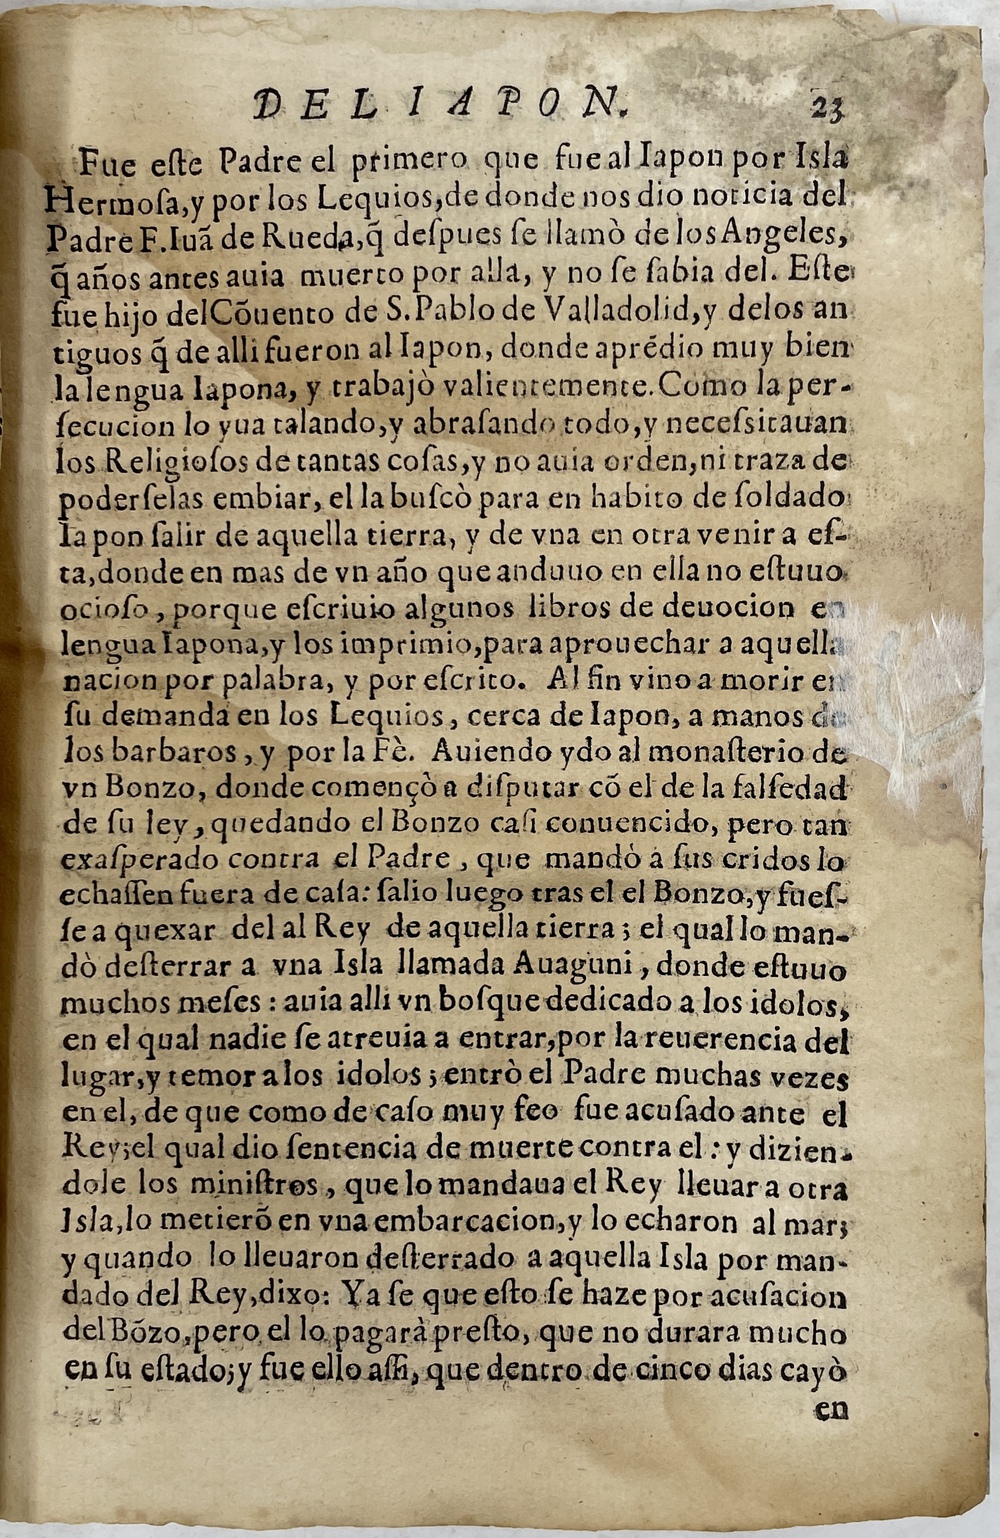 DEL IAPON. 23
Fue eſte Padre el primero que fue al Iapon por Isla
Hermoſa, y por los Lequios, de donde nos dio noticia del
Padre F. Iuã de Rueda, q̃ deſpues ſe llamò de los Angeles,
q̃ años antes auia muerto por alla, y no ſe ſabia del. Eſte
fue hijo del Cõuento de S. Pablo de Valladolid, y delos an
tiguos q̃ de alli fueron al Iapon, donde aprẽdio muy bien
la lengua Iapona, y trabajò valientemente. Como la per-
ſecucion lo yua talando, y abraſando todo, y neceſsitauan
los Religioſos de tantas coſas, y no auia orden, ni traza de
poderſelas embiar, el la buſcò para en habito de ſoldado
Iapon ſalir de aquella tierra, y de vna en otra venir a eſ-
ta, donde en mas de vn año que anduuo en ella no eſtuuo
ocioſo, porque eſcriuio algunos libros de deuocion en
lengua Iapona, y los imprimio, para aprouechar a aquella
nacion por palabra, y por eſcrito. Al fin vino a morir en
ſu demanda en los Lequios, cerca de Iapon, a manos de
los barbaros, y por la Fè. Auiendo ydo al monaſterio de
vn Bonzo, donde començò a diſputar cõ el de la falſedad
de ſu ley, quedando el Bonzo caſi conuencido, pero tan
exaſperado contra el Padre, que mandò a ſus cridos lo
echaſſen fuera de caſa: ſalio luego tras el el Bonzo, y fueſ-
ſe a quexar del al Rey de aquella tierra; el qual lo man-
dò deſterrar a vna Isla llamada Auaguni, donde eſtuuo
muchos meſes: auia alli vn boſque dedicado a los idolos,
en el qual nadie ſe atreuia a entrar, por la reuerencia del
lugar, y temor a los idolos; entrò el Padre muchas vezes
en el, de que como de caſo muy feo fue acuſado ante el
Rey; el qual dio ſentencia de muerte contra el: y dizien-
dole los miniſtros, que lo mandaua el Rey lleuar a otra
Isla, lo metierõ en vna embarcacion, y lo echaron al mar;
y quando lo lleuaron deſterrado a aquella Isla por man-
dado del Rey, dixo: Ya ſe que eſto ſe haze por acuſacion
del Bõzo, pero el lo pagarà preſto, que no durara mucho
en ſu eſtado; y fue ello aſſi, que dentro de cinco dias cayò
en